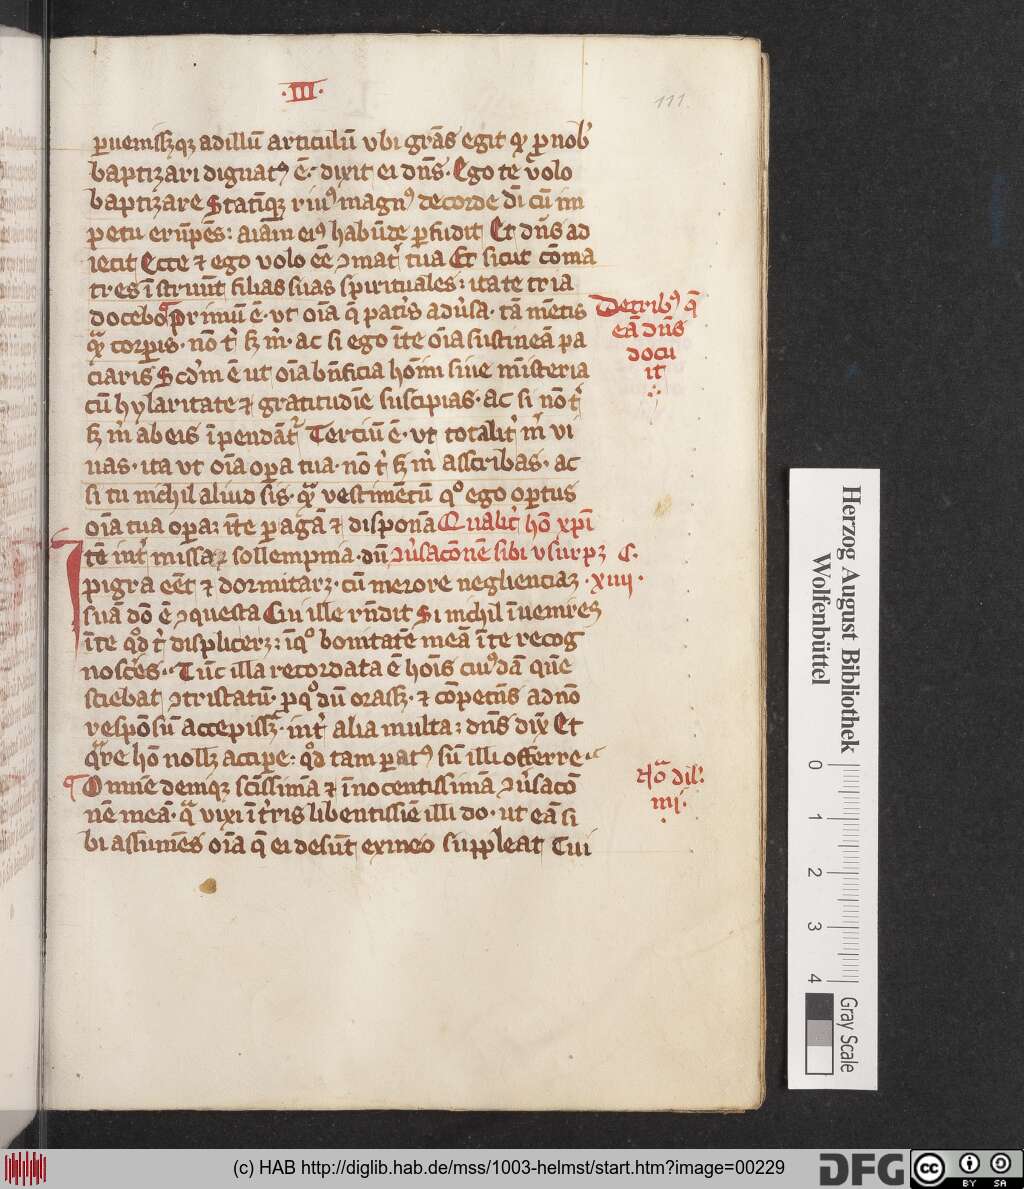 ·III·
111.
ꝑuenissꝫqꝫ ad illū articulū vbi grās egit qꝛ ꝓ nob'
baptizari dignatꝰ ē· dixit ei dn̄s· Ego te volo
baptizare Statīqꝫ riuꝰ magnꝰ de corde dī cū im
petu erūpēs: aīam eiꝰ habūde ꝑfudit Et dn̄s ad
iecit Ecce ⁊ ego volo eē ꝯmat' tua Et sicut cōma
tres īstruūt filias suas spirituales: ita te tria
docebo Primū ē· vt oīa q̄ patis adūsa· tā mētis
qͣꝫ corꝑis· nō t' sꝫ m'· ac si ego īte oīa sustineā pa
ciaris Scd'm ē ut oīa bn̄ficia hōmi siue mīsteria
cū hylaritate ⁊ gratitudīe suscipias· ac si nō t'
sꝫ m' ab eis īpendāt' Terciū ē· vt totalit' m' vi
uas· ita vt oīa oꝑa tua· nō t' sꝫ m' asscribas· ac
si tu nichil aliud sis· qͣꝫ vestimētū qͦ ego oꝑtus
oīa tua oꝑa: īte ꝑagā ⁊ disponā Qualit' hō xp̄i
Itē int' missaꝝ sollempnia· dū ꝯūsacōnē sibi vsurpꝫ c·
pigra eēt ⁊ dormitarꝫ· cū merore negliencīaꝫ ·xiiij·
suā dō ē ꝯquesta Cui ille rn̄dit Si nichil īuenires
īte qd' t' displicerꝫ: īqͦ bonitatē meā īte recog
nosces·· Tūc illa recordata ē hoīs cuiꝰdā quē
sciebat ꝯtristatū· ꝓ qͦ dū orassꝫ· ⁊ cōpetēs ad nō
respōsū accepissꝫ· int' alia multa: dn̄s dix̄ Et
qͣre hō nollꝫ acciꝑe: qd' tam ꝑatꝰ sū illi offerre
Omnē deniqꝫ scīssimā ⁊ īnocentissimā ꝯūsacō
nē meā· qͣ vixi ī t'ris libentissīe illi do· ut eā si
bi assumēs oīa q̄ ei desūt ex meo suppleat Cui
De tribꝰ q̄
eā dn̄s
docu
it
Nōͣ dil'
nī·
Herzog August Bibliothek
Wolfenbüttel
0
1
2
3
4
Gray Scale
(c) HAB http://diglib.hab.de/mss/1003-helmst/start.htm?image=00229
DFG
cc
BY SA